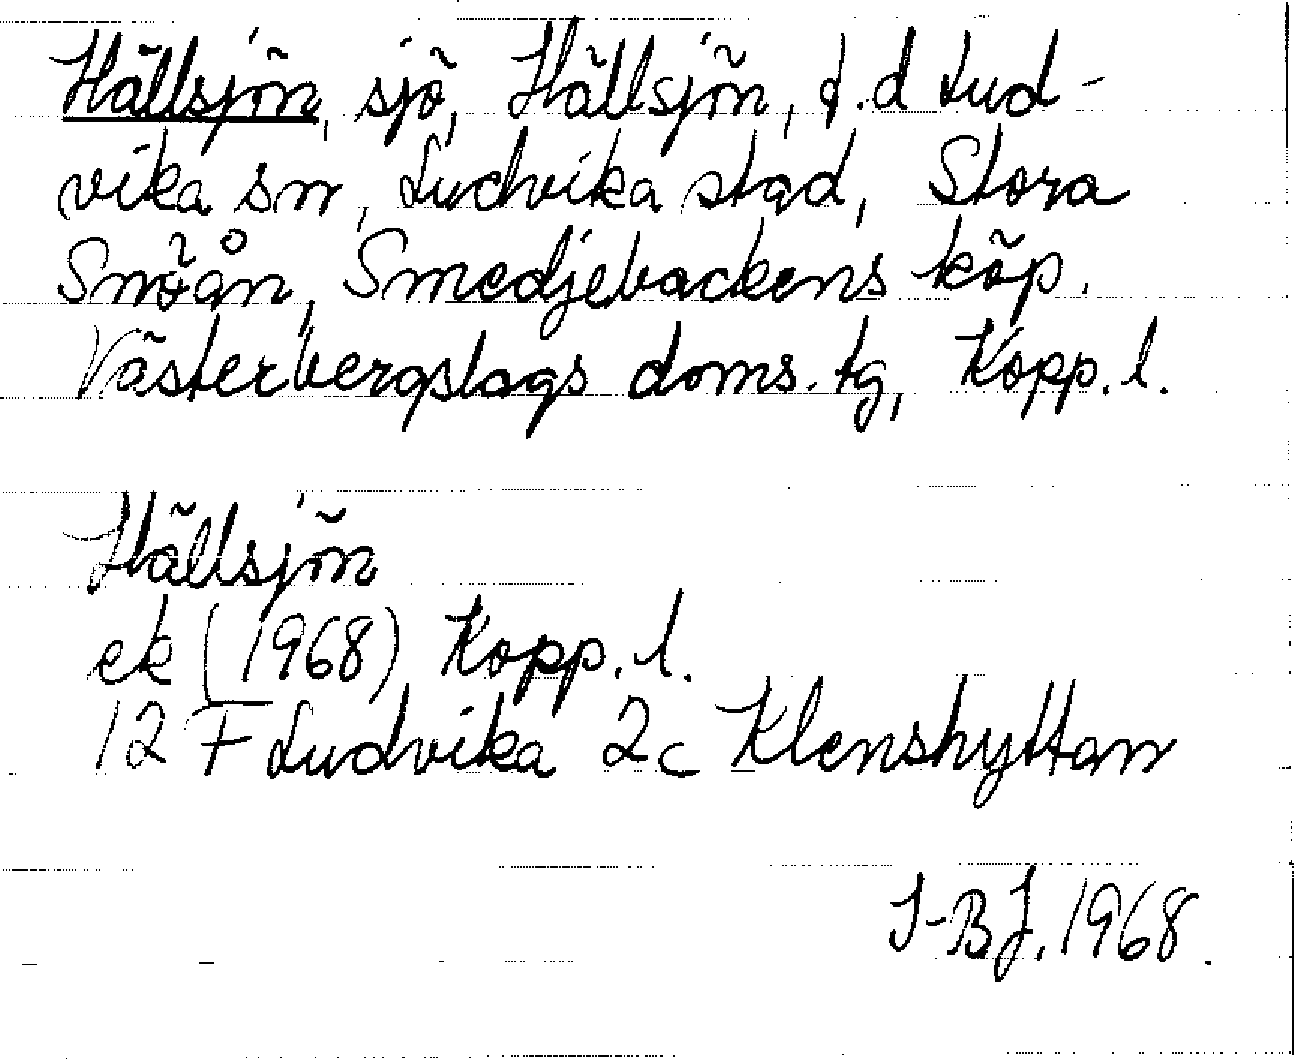 Hällsjön, sjö, Hällsjön, f.d Lud-
vika sn, Ludvika stad, Stora
Snöån, Smedjebackens köp.
Västerbergslags doms. tg, Kopp. l.
Hällsjön
ek (1968) Kopp. l.
12 F Ludvika 2c Klenshyttan
I-BJ. 1968.